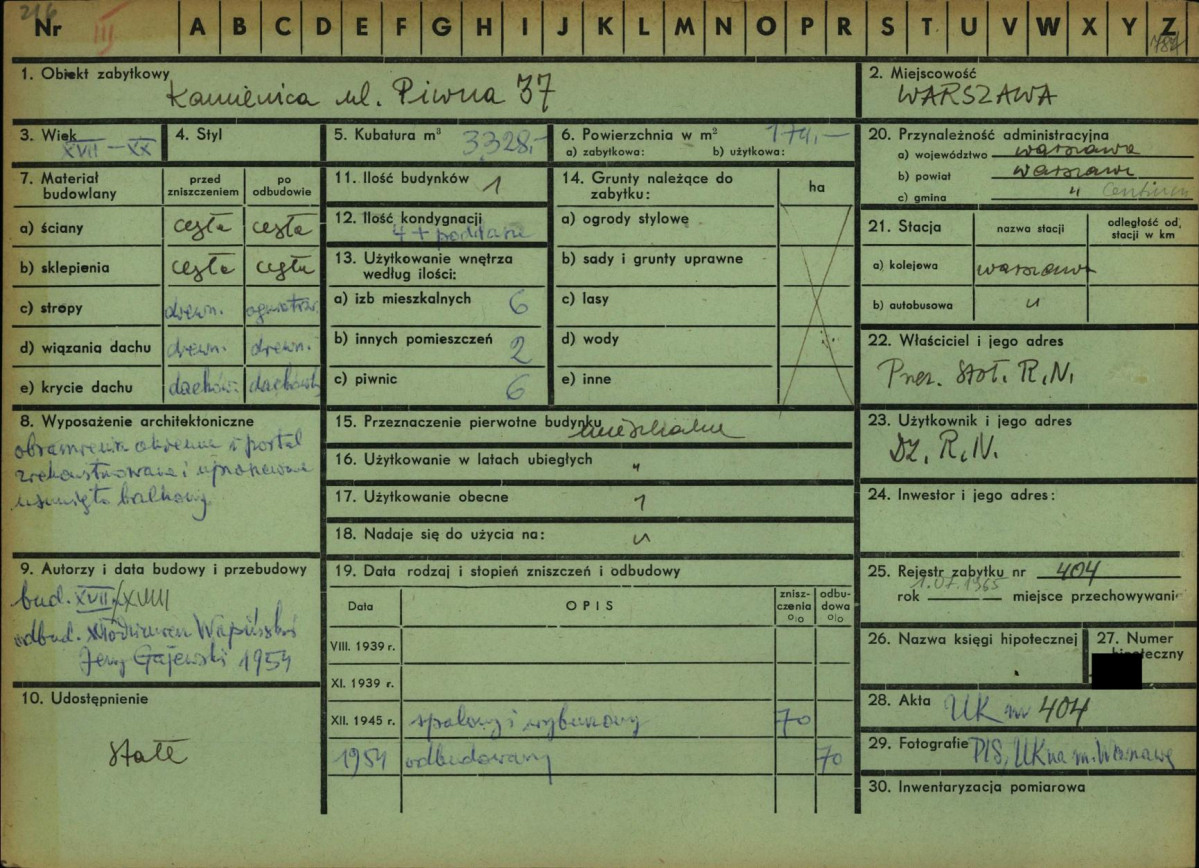 216
Nr III A B C D E F G H I J K L M N O P R S T U V W X Y Z
1. Obiekt zabytkowy
Kamienica ul. Piwna 37
2. Miejscowość
WARSZAWA
3. Wiek
XVII — XX
4. Styl
5. Kubatura m³ 3328,-
6. Powierzchnia w m² 174,—
a) zabytkowa: b) użytkowa:
20. Przynależność administracyjna
a) województwo warszawa
b) powiat warszawa
c) gmina "
7. Materiał budowlany
przed zniszczeniem
po odbudowie
a) ściany cegła cegła
b) sklepienia cegła cegła
c) stropy drewn. ogniotrw.
d) wiązania dachu drewn. drewn.
e) krycie dachu dachów. dachówka
11. Ilość budynków 1
12. Ilość kondygnacji
4 + poddasze
13. Użytkowanie wnętrza
według ilości:
a) izb mieszkalnych 6
b) innych pomieszczeń 2
c) piwnic 6
14. Grunty należące do
zabytku:
ha
a) ogrody stylowe
b) sady i grunty uprawne
c) lasy
d) wody
e) inne
21. Stacja
nazwa stacji
odległość od stacji w km
a) kolejowa warszawa
b) autobusowa "
22. Właściciel i jego adres
Prez. Stoł. R.N.
8. Wyposażenie architektoniczne
obramienia okienne i portal
zrekonstruowane i uproszczone
usunięto balkony
15. Przeznaczenie pierwotne budynku
mieszkalne
16. Użytkowanie w latach ubiegłych "
17. Użytkowanie obecne "
18. Nadaje się do użycia na: "
23. Użytkownik i jego adres
Dz. R.N.
24. Inwestor i jego adres:
9. Autorzy i data budowy i przebudowy
bud. XVII/XVIII
odbud. Włodzimierz Wapiński
Jerzy Gajewski 1954
19. Data rodzaj i stopień zniszczeń i odbudowy
Data
OPIS
zniszczenia %
odbudowa %
VIII. 1939 r.
XI. 1939 r.
XII. 1945 r. spalony i wyburzony 70
1954 odbudowany 70
25. Rejestr zabytku nr 404
1.07.1965
rok miejsce przechowywani
26. Nazwa księgi hipotecznej
27. Numer
10. Udostępnienie
stałe
28. Akta UK nr 404
29. Fotografie PIS, UK na m. Warszawę
30. Inwentaryzacja pomiarowa